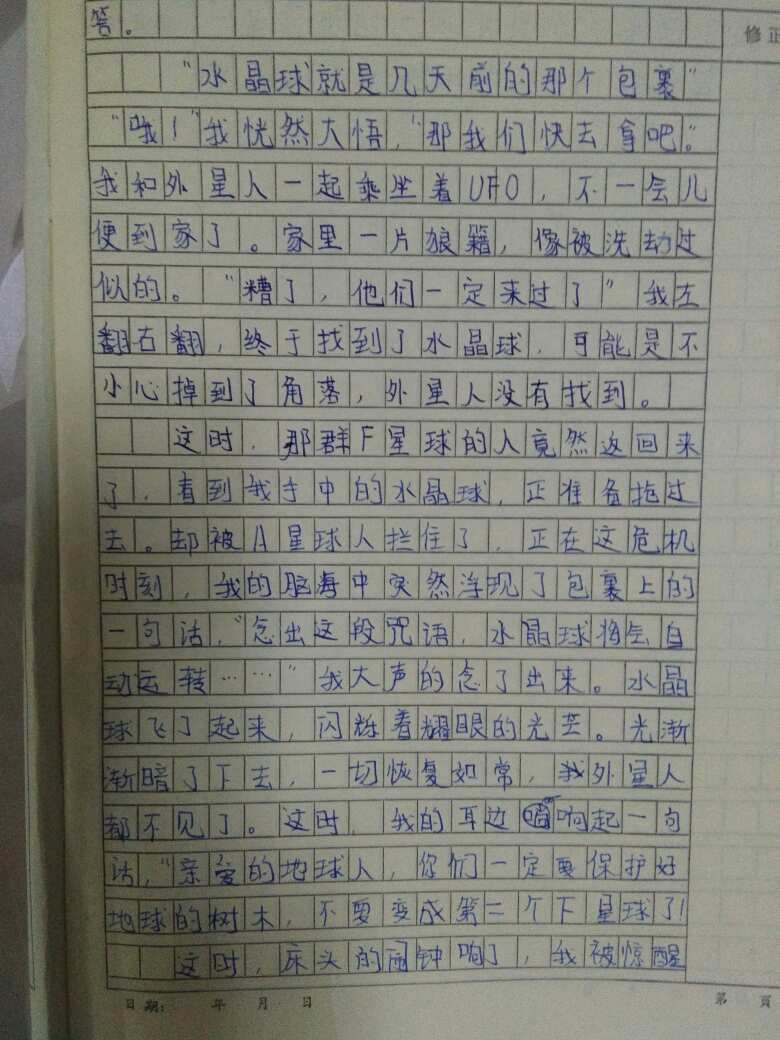 答。
修正
"水晶球就是几天前的那个包裹"
"哦!"我恍然大悟,"那我们快去拿吧。"
我和外星人一起乘坐着UFO,不一会儿
便到家了。家里一片狼籍,像被洗劫过
似的。"糟了,他们一定来过了"我左
翻右翻,终于找到了水晶球,可能是不
小心掉到了角落,外星人没有找到。
这时,那群F星球的人竟然返回来
了,看到我手中的水晶球,正准备抢过
去。却被A星球人拦住了,正在这危机
时刻,我的脑海中突然浮现了包裹上的
一句话,"念出这段咒语,水晶球将会自
动运转……"我大声的念了出来。水晶
球飞了起来,闪烁着耀眼的光芒。光渐
渐暗了下去,一切恢复如常,我外星人
都不见了。这时,我的耳边响起一句
话,"亲爱的地球人,你们一定要保护好
地球的树木,不要变成第二个下星球了!
这时,床头的闹钟响了,我被惊醒
日期: 年 月 日
第 頁